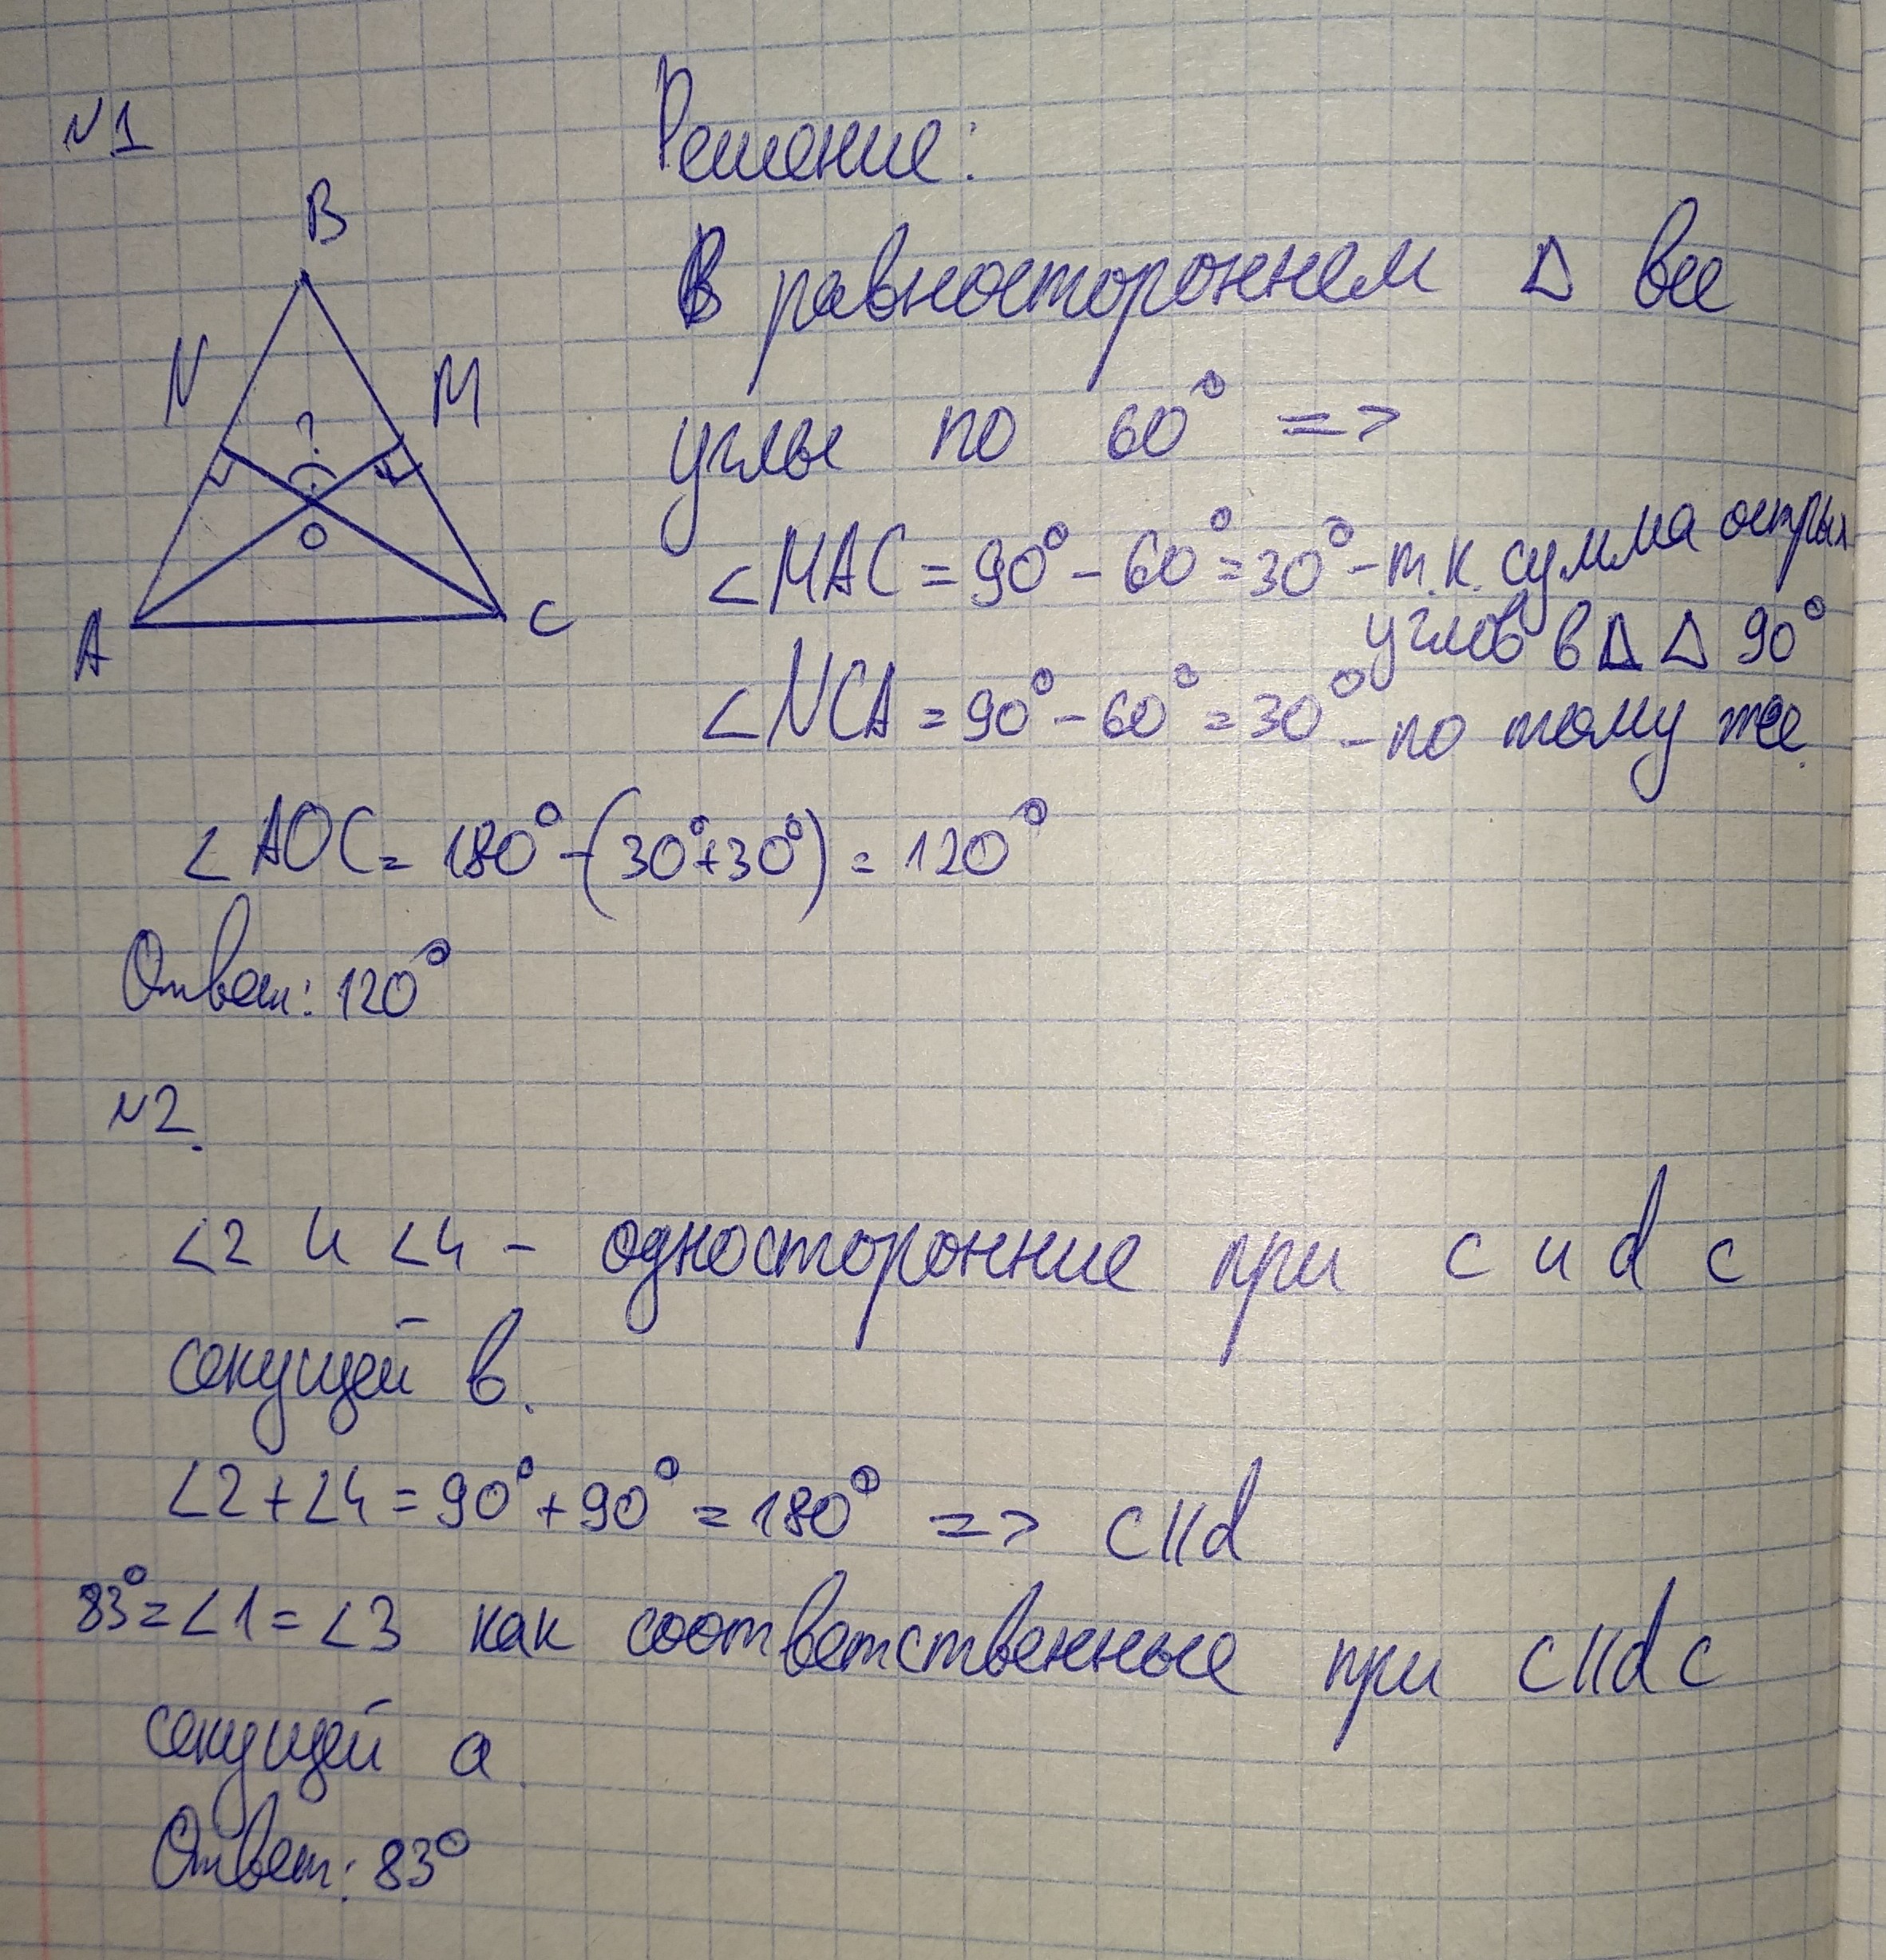 N1
Решение:
B
N
M
?
O
A
C
В равностороннем Δ все
углы по 60° =>
∠MAC = 90° - 60° = 30° - т.к. сумма острых
углов в Δ Δ 90°
∠NCA = 90° - 60° = 30° - по тому же.
∠AOC = 180° - (30°+30°) = 120°
Ответ: 120°
N2.
∠2 и ∠4 - односторонние при c и d с
секущей в.
∠2+∠4 = 90°+90° = 180° => c||d
83° = ∠1 = ∠3 как соответственные при c||d с
секущей a.
Ответ: 83°